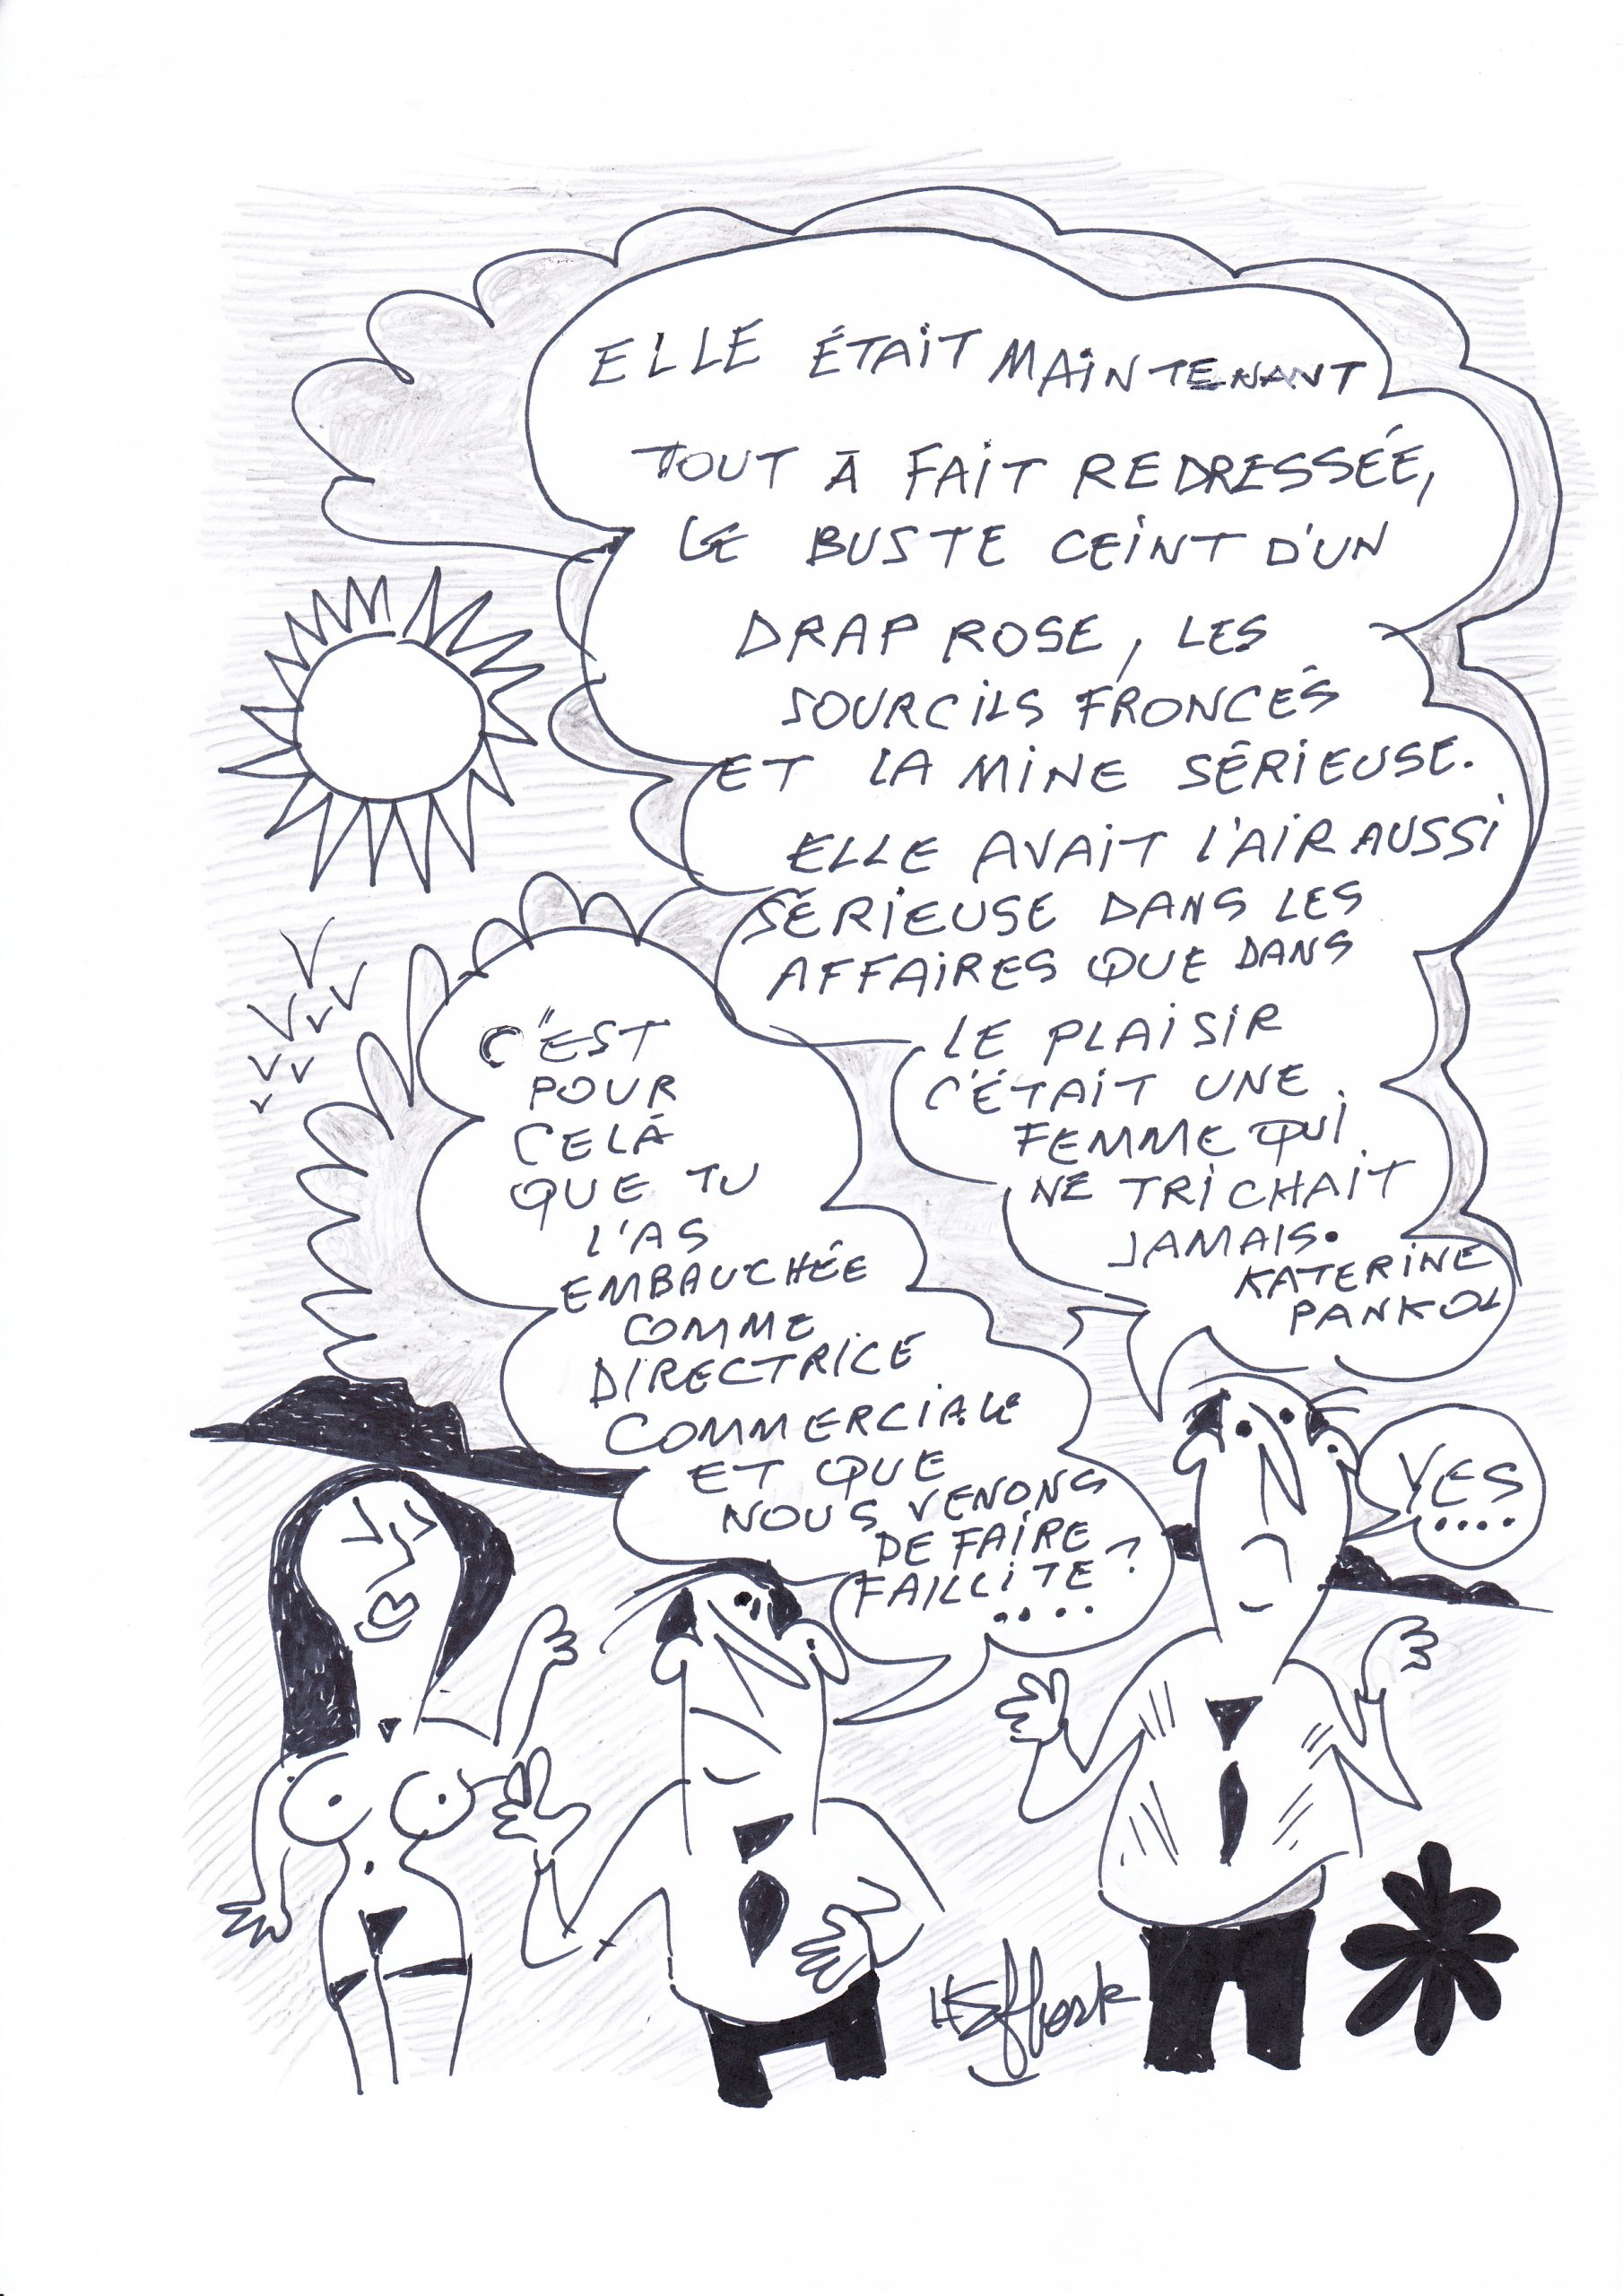 ELLE ÉTAIT MAINTENANT
TOUT À FAIT REDRESSÉE,
LE BUSTE CEINT D'UN
DRAP ROSE, LES
SOURCILS FRONCÉS
ET LA MINE SÉRIEUSE.
ELLE AVAIT L'AIR AUSSI
SÉRIEUSE DANS LES
AFFAIRES QUE DANS
LE PLAISIR
C'ÉTAIT UNE
FEMME QUI
NE TRICHAIT
JAMAIS.
KATERINE
PANKOL
C'EST
POUR
CELÀ
QUE TU
L'AS
EMBAUCHÉE
COMME
DIRECTRICE
COMMERCIALE
ET QUE
NOUS VENONS
DE FAIRE
FAILLITE ?
....
YES
....